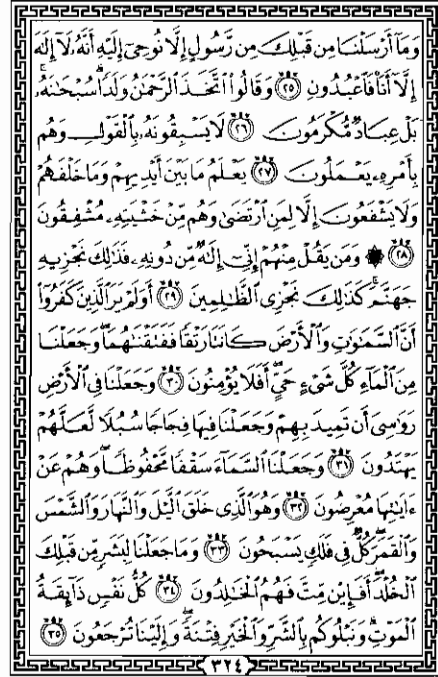 وَمَآ أَرْسَلْنَا مِن قَبْلِكَ مِن رَّسُولٍ إِلَّا نُوحِىٓ إِلَيْهِ أَنَّهُۥ لَآ إِلَٰهَ
إِلَّآ أَنَا۠ فَٱعْبُدُونِ ٢٥ وَقَالُوا۟ ٱتَّخَذَ ٱلرَّحْمَٰنُ وَلَدًا ۗ سُبْحَٰنَهُۥ ۚ
بَلْ عِبَادٌ مُّكْرَمُونَ ٢٦ لَا يَسْبِقُونَهُۥ بِٱلْقَوْلِ وَهُم
بِأَمْرِهِۦ يَعْمَلُونَ ٢٧ يَعْلَمُ مَا بَيْنَ أَيْدِيهِمْ وَمَا خَلْفَهُمْ
وَلَا يَشْفَعُونَ إِلَّا لِمَنِ ٱرْتَضَىٰ وَهُم مِّنْ خَشْيَتِهِۦ مُشْفِقُونَ
٢٨ ۞ وَمَن يَقُلْ مِنْهُمْ إِنِّىٓ إِلَٰهٌ مِّن دُونِهِۦ فَذَٰلِكَ نَجْزِيهِ
جَهَنَّمَ ۚ كَذَٰلِكَ نَجْزِى ٱلظَّٰلِمِينَ ٢٩ أَوَلَمْ يَرَ ٱلَّذِينَ كَفَرُوٓا۟
أَنَّ ٱلسَّمَٰوَٰتِ وَٱلْأَرْضَ كَانَتَا رَتْقًا فَفَتَقْنَٰهُمَا ۖ وَجَعَلْنَا
مِنَ ٱلْمَآءِ كُلَّ شَىْءٍ حَىٍّ ۖ أَفَلَا يُؤْمِنُونَ ٣٠ وَجَعَلْنَا فِى ٱلْأَرْضِ
رَوَٰسِىَ أَن تَمِيدَ بِهِمْ وَجَعَلْنَا فِيهَا فِجَاجًا سُبُلًا لَّعَلَّهُمْ
يَهْتَدُونَ ٣١ وَجَعَلْنَا ٱلسَّمَآءَ سَقْفًا مَّحْفُوظًا ۖ وَهُمْ عَنْ
ءَايَٰتِهَا مُعْرِضُونَ ٣٢ وَهُوَ ٱلَّذِى خَلَقَ ٱلَّيْلَ وَٱلنَّهَارَ وَٱلشَّمْسَ
وَٱلْقَمَرَ ۖ كُلٌّ فِى فَلَكٍ يَسْبَحُونَ ٣٣ وَمَا جَعَلْنَا لِبَشَرٍ مِّن قَبْلِكَ
ٱلْخُلْدَ ۖ أَفَإِي۟ن مِّتَّ فَهُمُ ٱلْخَٰلِدُونَ ٣٤ كُلُّ نَفْسٍ ذَآئِقَةُ
ٱلْمَوْتِ ۗ وَنَبْلُوكُم بِٱلشَّرِّ وَٱلْخَيْرِ فِتْنَةً ۖ وَإِلَيْنَا تُرْجَعُونَ ٣٥
٣٢٤